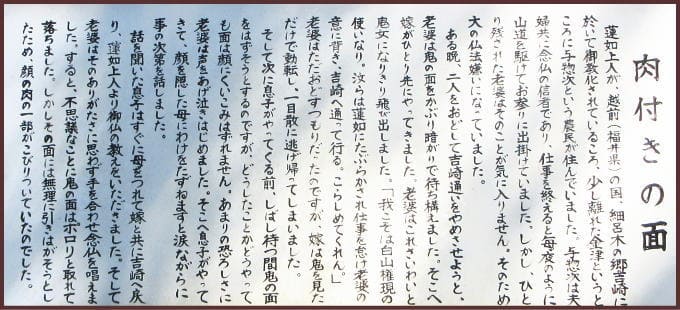 肉付きの面
蓮如上人が、越前(福井県)の国、細呂木の郷吉崎に
於いて御教化されているころ、少し離れた金津というと
ころに与惣次という農民が住んでいました。与惣次は夫
婦共に念仏の信者であり、仕事を終えると毎夜のように
山道を駆けてお参りに出掛けていました。しかし、ひと
残された老婆はそのことが気に入りません。そのため
大の仏法嫌いになっていました。
ある晩、二人をおどして吉崎通いをやめさせようと、
老婆は鬼の面をかぶり暗がりで待ち構えました。そこへ
嫁がひとり先にやってきました。老婆はこれさいわいと
鬼女になりきり飛び出しました。「我こそは白山権現の
使いなり。汝らは蓮如にたぶらかされ仕事を怠け老婆の
意に背き、吉崎へ通って行る。こらしめてくれん。」
老婆はただおどすつもりだったのですが、嫁は鬼を見た
だけで動転し、一目散に逃げ帰ってしまいました。
そして次に息子がやってくる前、しばし待つ間鬼の面
をはずそうとするのですが、どうしたことかとうやって
も面は顔にくいこみはずれません。あまりの恐ろしさに
老婆は声をあげ泣きはじめました。そこへ息子がやって
きて、顔を隠した母にわけをたずねますと涙ながらに
事の次第を話しました。
話を聞いた息子はすぐに母をつれて嫁と共に吉崎へ戻
り、蓮如上人より御仏の教えをいただきました。そして
老婆はそのありがたさに思わず手を合わせ念仏を唱えま
した。すると、不思議なことに鬼の面はポロリと取れて
落ちました。しかしその面には無理に引きはがそうとし
たため、顔の肉の一部がこびりついていたのでした。